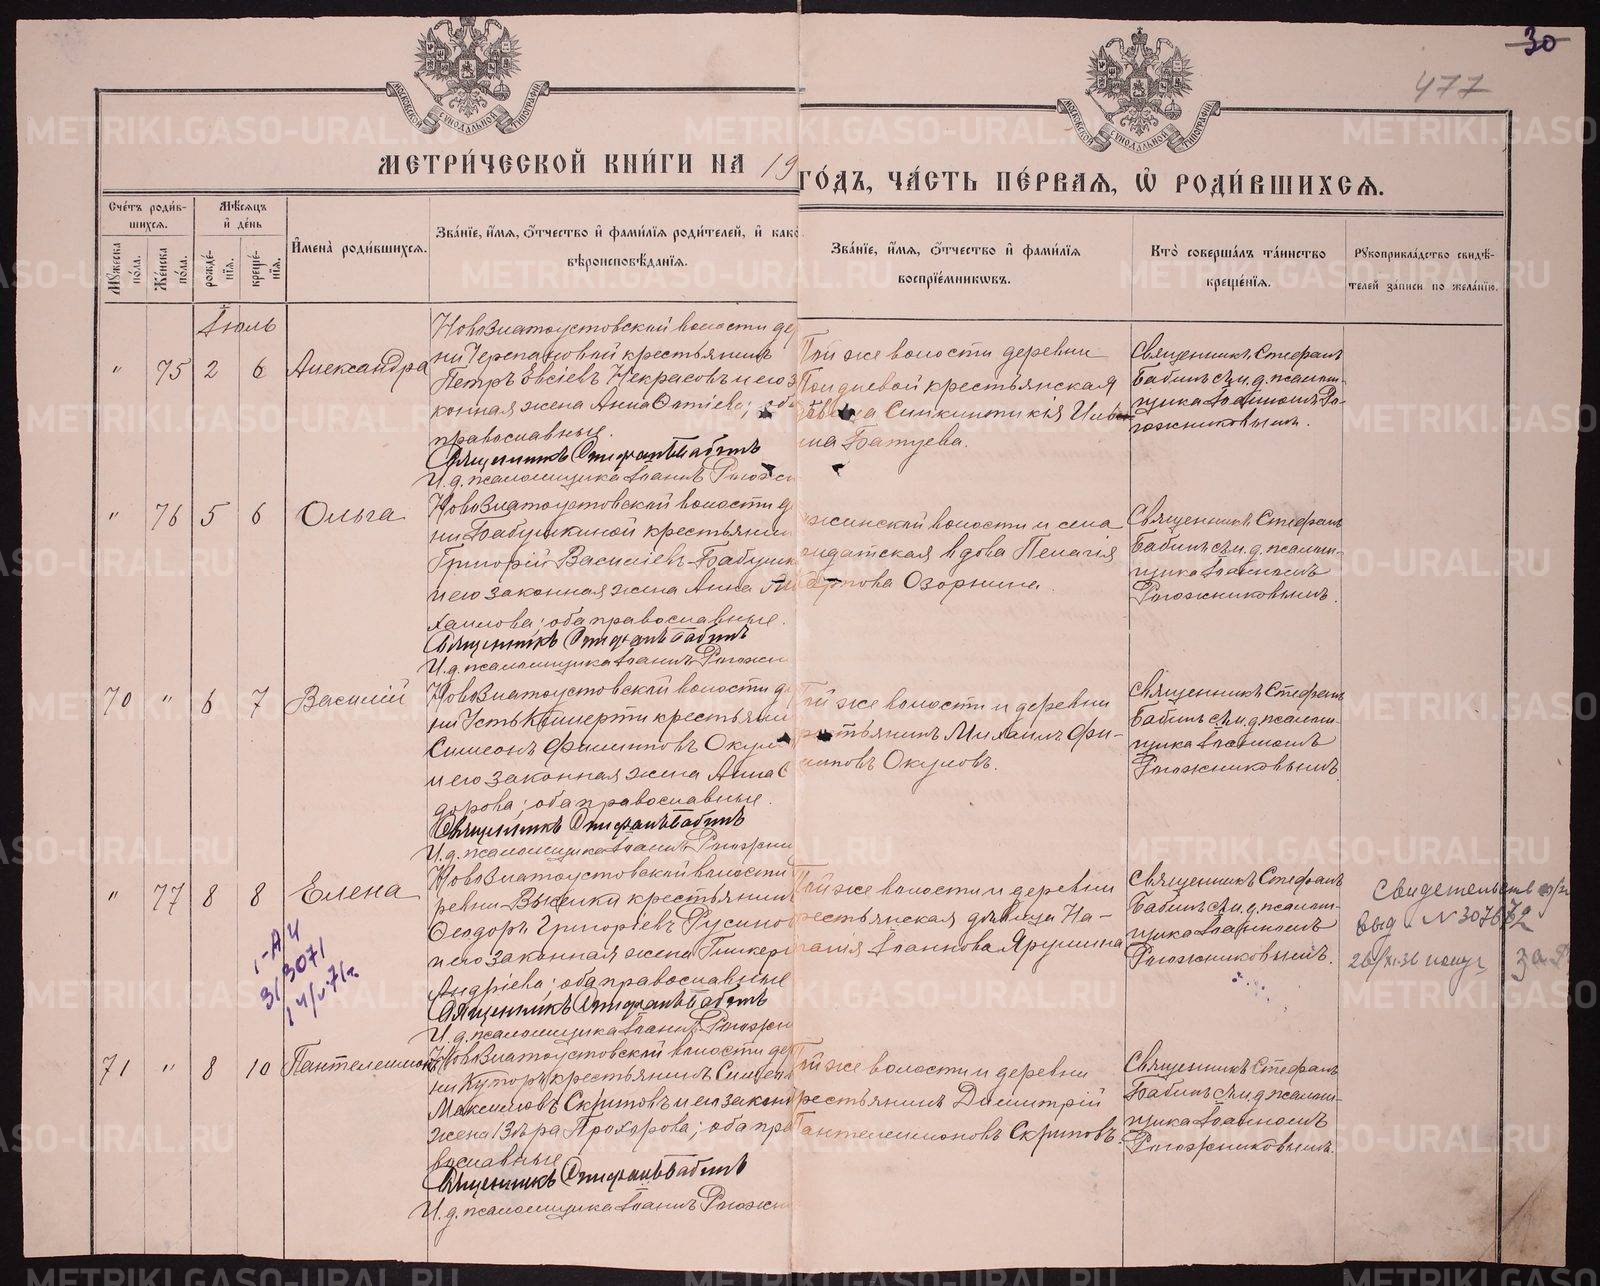 30
477
МОСКОВСКОЙ СѴНОДАЛЬНОЙ ТИПОГРАФІИ
МОСКОВСКОЙ СѴНОДАЛЬНОЙ ТИПОГРАФІИ
МЕТРИ́ЧЕСКОЙ КНИ́ГИ НА 19
ГО́ДЪ, ЧА́СТЬ ПЕ́РВАЯ, Ѡ҆ РОДИ́ВШИХСЯ.
Сче́тъ роди́вшихся.
Мѣ́сяцъ и҆ де́нь
Мꙋ́жеска по́ла.
Же́нска по́ла.
рожде́нїя.
креще́нїя.
И҆мена̀ роди́вшихся.
Зва́нїе, и҆́мя, ѻ҆́тчество и҆ фами́лїя роди́телей, и҆ како
вѣроисповѣ́данїя.
Зва́нїе, и҆́мя, ѻ҆́тчество и҆ фами́лїя
воспрїе́мникѡвъ.
Кто̀ соверша́лъ та́инство
креще́нїя.
Рꙋкоприкла́дство свидѣ́-
телей за́писи по жела́нїю.
Іюль
" 75 2 6 Александра
Новозлатоустовской волости де
ни Черепановой крестьянинъ
Петръ Евсіевъ Некрасовъ и его з
конная жена Анна Фотіева; оба
православные.
Священникъ Стефанъ Бабинъ
И. д. псаломщика Іоаннъ Рогожн
Той же волости деревни
крестьянская
дѣвица Синклитикія
на Батуева.
Священникъ Стефанъ
Бабинъ съ и. д. псалом-
щика Іоанномъ Ро-
гожниковымъ.
" 76 5 6 Ольга
Новозлатоустовской волости д
ни Бабушкиной крестьянин
Григорій Василіевъ Бабушк
и его законная жена Анна
хаилова; оба православные.
Священникъ Стефанъ Бабинъ
И. д. псаломщика Іоаннъ Рогожн
жинской волости и села
олдатская вдова Пелагія
Озорнина.
Священникъ Стефанъ
Бабинъ съ и. д. псалом-
щика Іоанномъ
Рогожниковымъ.
70 " 6 7 Василій
Новозлатоустовской волости д
ни Усть Кишерти крестьянин
Симеонъ Филипповъ Окул
и его законная жена Анна
дорова; оба православные.
Священникъ Стефанъ Бабинъ
И. д. псаломщика Іоаннъ Рогожни
Той же волости и деревни
рестьянинъ Михаилъ Фи-
липповъ Окуловъ.
Священникъ Стефанъ
Бабинъ съ и. д. псалом-
щика Іоанномъ
Рогожниковымъ.
" 77 8 8 Елена
Новозлатоустовской волости
ревни Выселка крестьянин
Ѳеодоръ Григоріевъ Русино
и его законная жена Гликер
Андріева; оба православные
Священникъ Стефанъ Бабинъ
И. д. псаломщика Іоаннъ Рогожн
Той же волости и деревни
рестьянская дѣвица На-
талія Іоаннова Ярушина
Священникъ Стефанъ
Бабинъ съ и. д. псалом-
щика Іоанномъ
Рогожниковымъ.
Свидетельств
выд. N 307672
1-АИ
313071
14/V-71г
71 " 8 10 Пантелеимон
Новозлатоустовской волости дер
ни крестьянинъ Симеон
Максимовъ Скриповъ и его законн
жена Вѣра Прохорова; оба пра
вославные
Священникъ Стефанъ Бабинъ
И. д. псаломщика Іоаннъ Рогожн
Той же волости и деревни
рестьянинъ Димитрій
Пантелеимоновъ Скриповъ.
Священникъ Стефанъ
Бабинъ съ и. д. псалом-
щика Іоанномъ
Рогожниковымъ.
METRIKI.GASO-URAL.RU